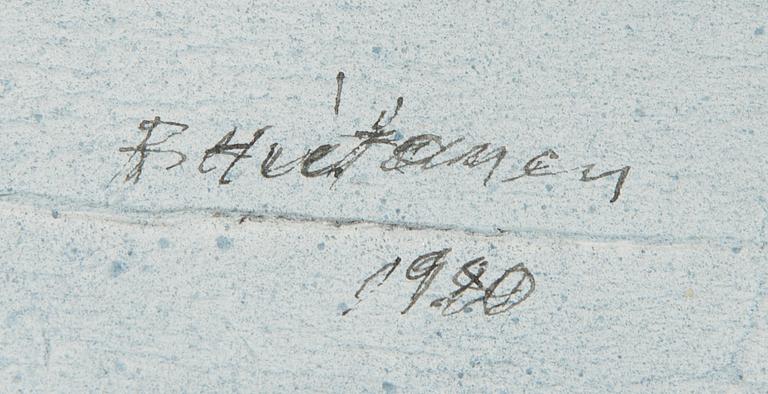 R Hietanen
1980